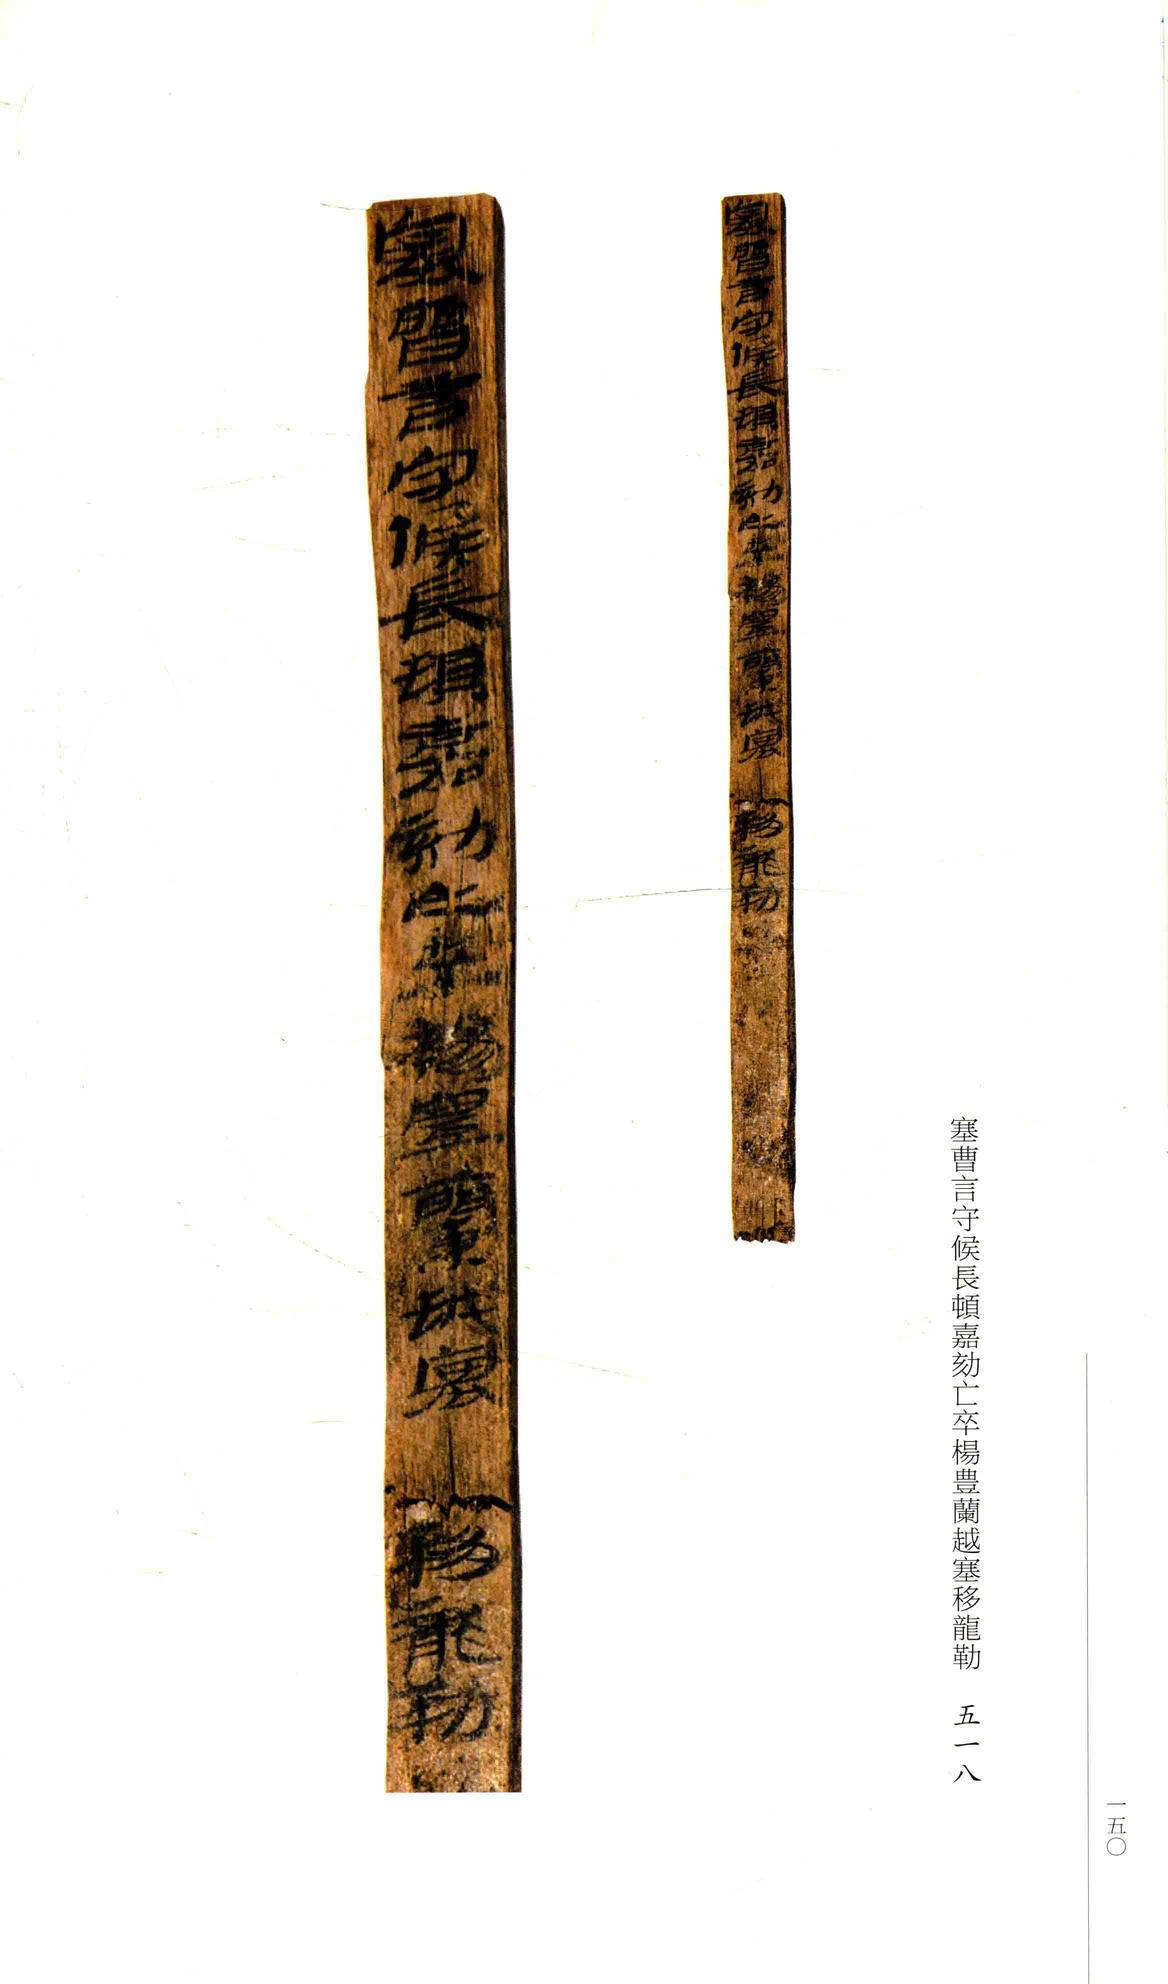 塞曹言守候長頓嘉劾亡卒楊豊蘭越塞移龍勒 五一八
一五〇
塞曹言守候長頓嘉劾亡卒楊豊蘭越塞移龍勒
塞曹言守候長頓嘉劾亡卒楊豊蘭越塞移龍勒